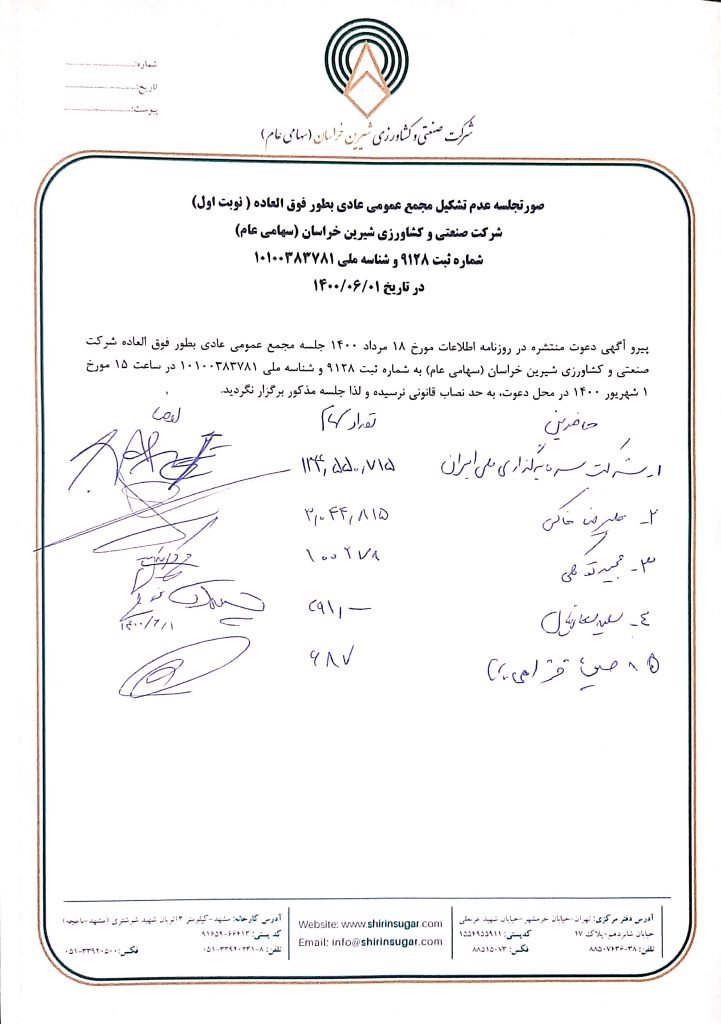 شماره:
تاریخ:
پیوست:
شرکت صنعتی و کشاورزی شیرین خراسان (سهامی عام)
صورتجلسه عدم تشکیل مجمع عمومی عادی بطور فوق العاده ( نوبت اول)
شرکت صنعتی و کشاورزی شیرین خراسان (سهامی عام)
شماره ثبت ۹۱۲۸ و شناسه ملی ۱۰۱۰۰۳۸۳۷۸۱
در تاریخ ۱۴۰۰/۰۶/۰۱
پیرو آگهی دعوت منتشره در روزنامه اطلاعات مورخ ۱۸ مرداد ۱۴۰۰ جلسه مجمع عمومی عادی بطور فوق العاده شرکت
صنعتی و کشاورزی شیرین خراسان (سهامی عام) به شماره ثبت ۹۱۲۸ و شناسه ملی ۱۰۱۰۰۳۸۳۷۸۱ در ساعت ۱۵ مورخ
۱ شهریور ۱۴۰۰ در محل دعوت، به حد نصاب قانونی نرسیده و لذا جلسه مذکور برگزار نگردید.
حاضرین تعداد سهام امضا
۱- شرکت سرمایه گذاری ملی ایران ۱۳۴,۵۵۰,۷۱۵
۲- علیرضا خاکی ۳,۰۴۴,۸۱۵
۳- ۱۰۰۲۷۸
۴- سعید
۵- ۶۸۷
۱۴۰۰/۶/۱
آدرس دفتر مرکزی: تهران-خیابان خرمشهر-خیابان شهید عربعلی
خیابان شانزدهم-پلاک ۱۷ کدپستی: ۱۵۵۴۹۵۵۹۱۱
تلفن: ۳۸-۸۸۵۰۷۶۳۶ فکس: ۸۸۵۱۵۰۷۳
Website: www.shirinsugar.com
Email: info@shirinsugar.com
آدرس کارخانه: مشهد-کیلومتر ۳ اتوبان شهید شوشتری (مشهد-باغچه)
کد پستی: ۶۶۴۱۳-۹۱۶۵۹
تلفن: ۸-۰۵۱-۳۳۹۲۰۲۳۱ فکس: ۰۵۱-۳۳۹۲۰۵۰۰